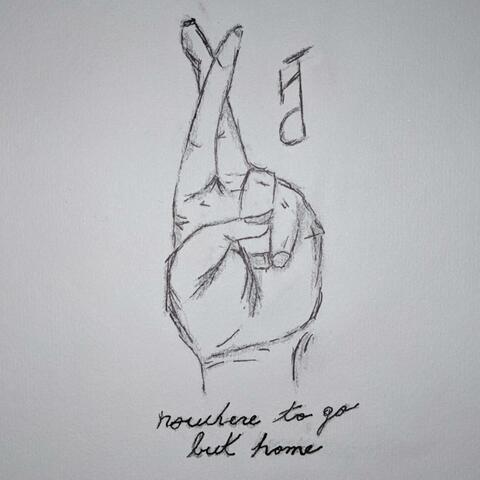 nowhere to go
but home